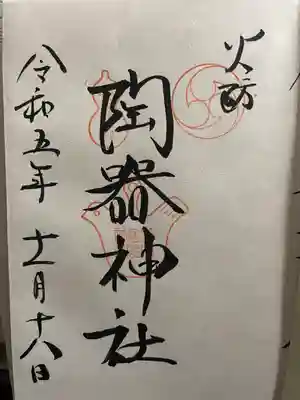 火防
陶器神社
令和五年 十一月十八日